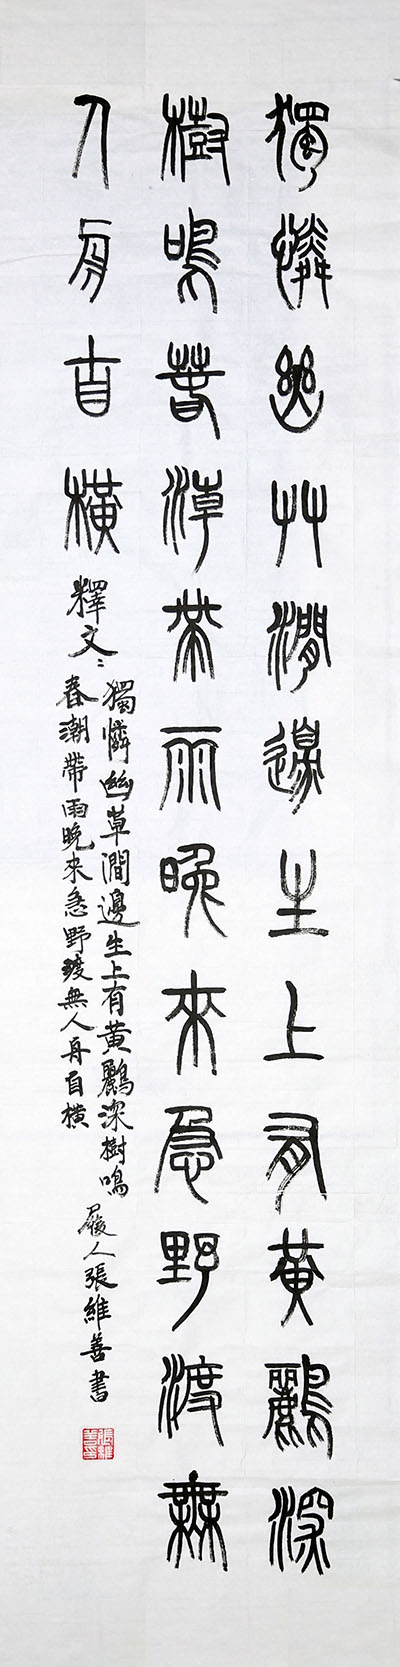 獨憐幽艸澗邊生上有黃鸝深
樹鳴春潮帶雨晚來急野渡無
人舟自橫
釋文：
獨憐幽草澗邊生上有黃鸝深樹鳴
春潮帶雨晚來急野渡無人舟自橫
履人張維善書
張維善印